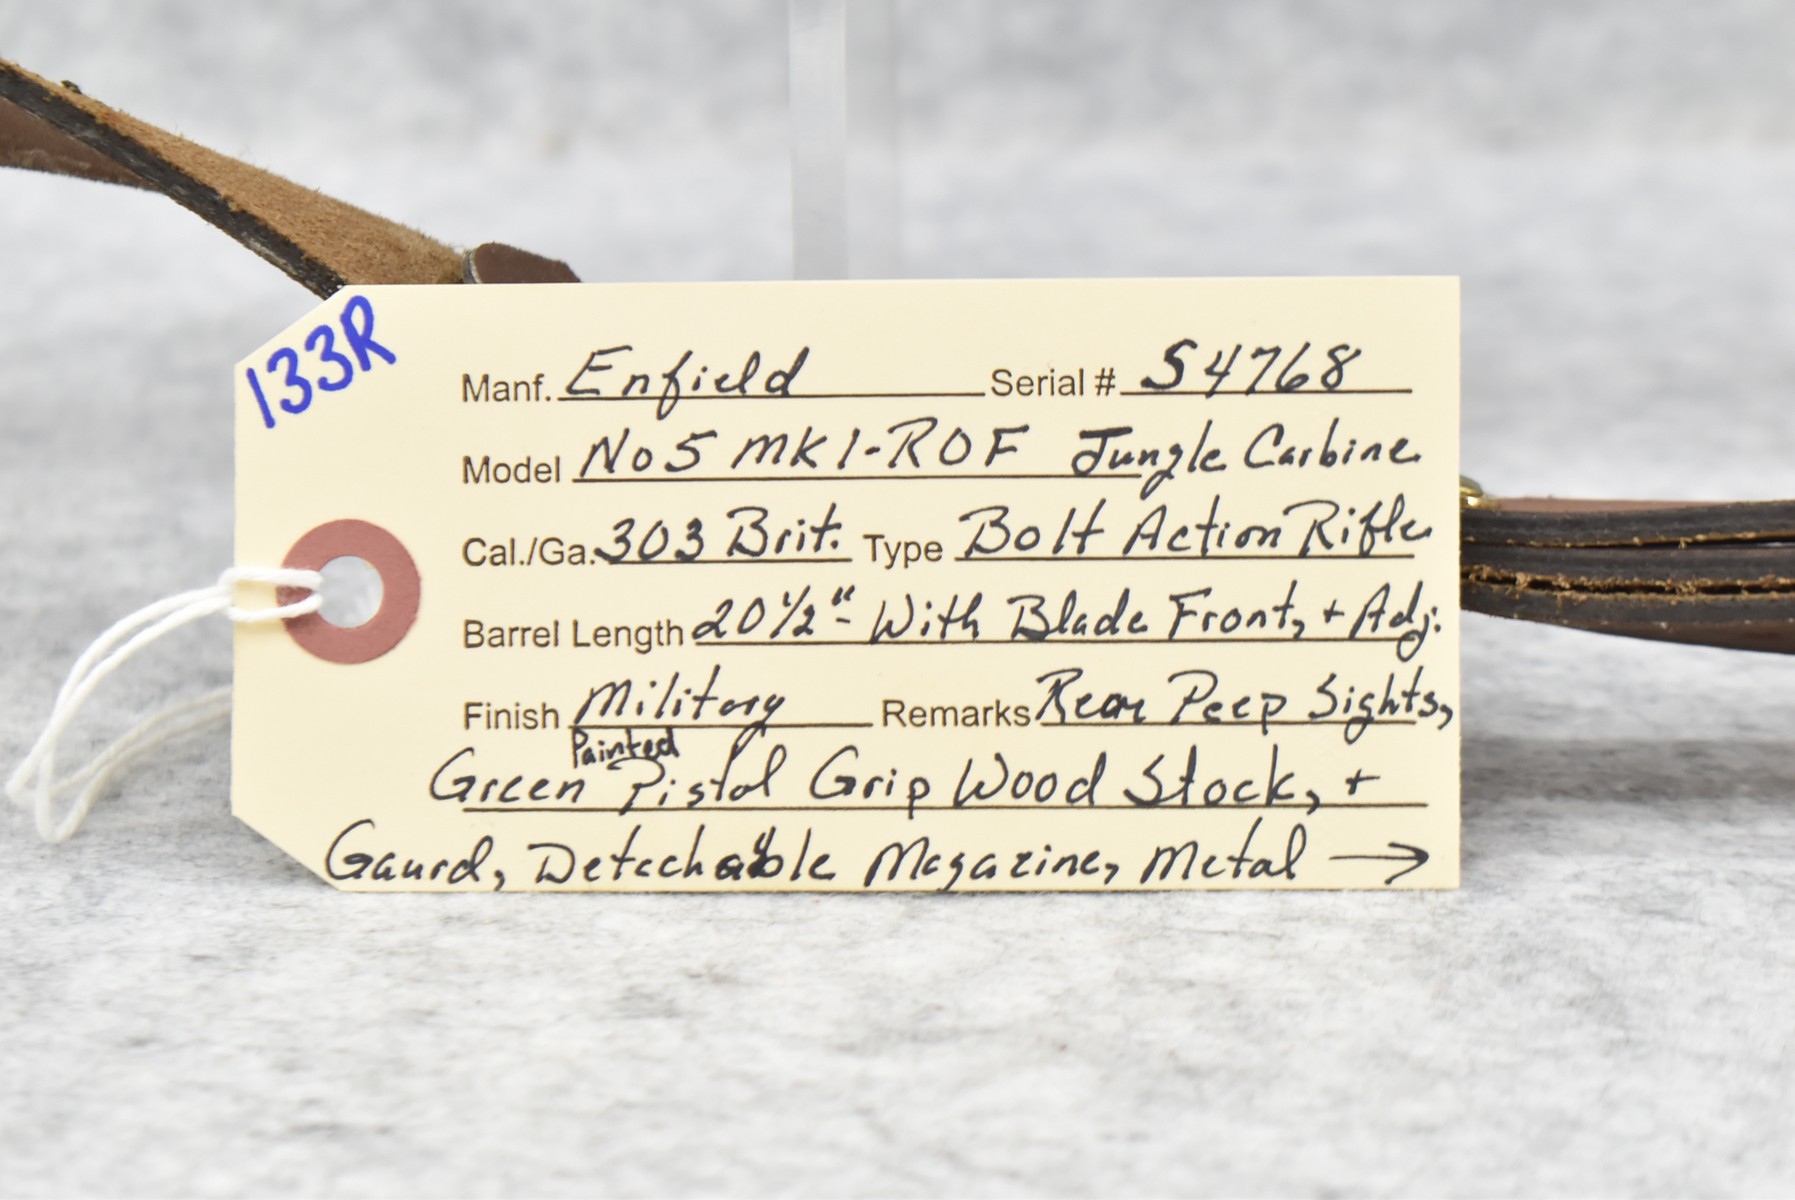 133R
Manf. Enfield Serial # S4768
Model No 5 MK 1-ROF Jungle Carbine
Cal./Ga. 303 Brit. Type Bolt Action Rifle
Barrel Length 20 1/2" - With Blade Front, + Adj.
Finish Military Remarks Rear Peep Sights,
Painted
Green Pistol Grip Wood Stock, +
Gaurd, Detachable Magazine, Metal →